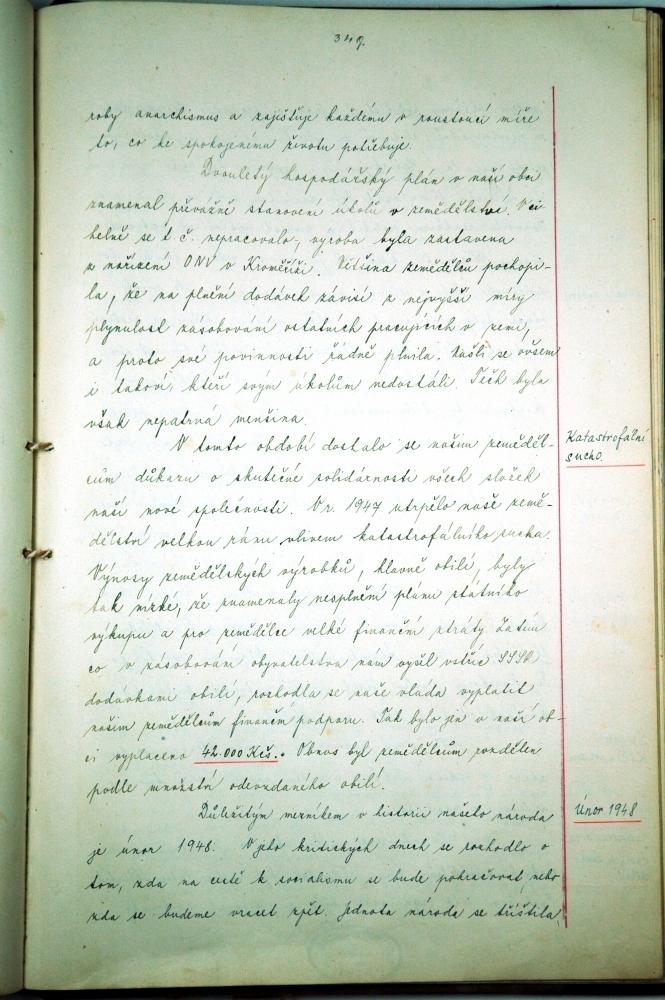 349.
roby anarchismus a zajišťuje každému v roustoucí míře
to, co ke spokojenému životu potřebuje.
Dvouletý hospodářský plán v naší obci
znamenal převážně stanovení úkolů v zemědělství. V ci
helně se t. č. nepracovalo, výroba byla zastavena
z nařízení ONV v Kroměříži. Většina zemědělců pochopi-
la, že na plnění dodávek závisí z nejvyšší míry
plynulost zásobování ostatních pracujících v zemi,
a proto své povinnosti řádně plnila. Našli se ovšem
i takoví, kteří svým úkolům nedostáli. Těch byla
však nepatrná menšina.
V tomto období dostalo se našim zeměděl-
Katastrofální
sucho.
cům důkazu o skutečné solidárnosti všech složek
naší nové společnosti. V r. 1947 utrpělo naše země-
dělství velkou ránu vlivem katastrofálního sucha.
Výnosy zemědělských výrobků, hlavně obilí, byly
tak nízké, že znamenaly nesplnění plánu státního
výkupu a pro zemědělce velké finanční ztráty. Zatím
co v zásobování obyvatelstva nám vyšel vstříc SSSR
dodávkami obilí, rozhodla se naše vláda vyplatit
našim zemědělcům finanční podporu. Tak bylo jim v naší ob-
ci vyplaceno 42.000 Kčs. Obnos byl zemědělcům rozdělen
podle množství odevzdaného obilí.
Důležitým mezníkem v historii našeho národa
Únor 1948
je únor 1948. V jeho kritických dnech se rozhodlo o
tom, zda na cestě k socialismu se bude pokračovat, nebo
zda se budeme vracet zpět. Jednota národa se tříštila,